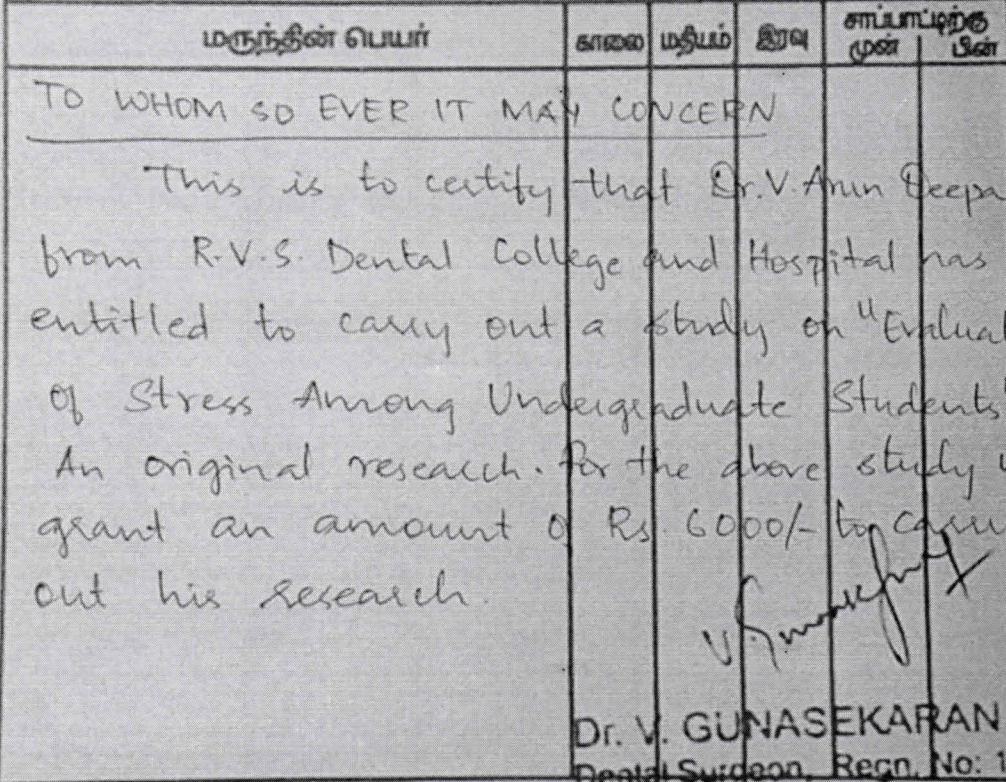 மருந்தின் பெயர் காலை மதியம் இரவு சாப்பாட்டிற்கு
முன் பின்
TO WHOM SO EVER IT MAY CONCERN
This is to certify that Dr. V. Arun Deepa
from R.V.S. Dental College and Hospital has
entitled to carry out a study on "Evaluat
of Stress Among Undergraduate Students
An original research. for the above study
grant an amount of Rs. 6000/- to carry
out his research.
Dr. V. GUNASEKARAN
Dental Surgeon, Regn, No: